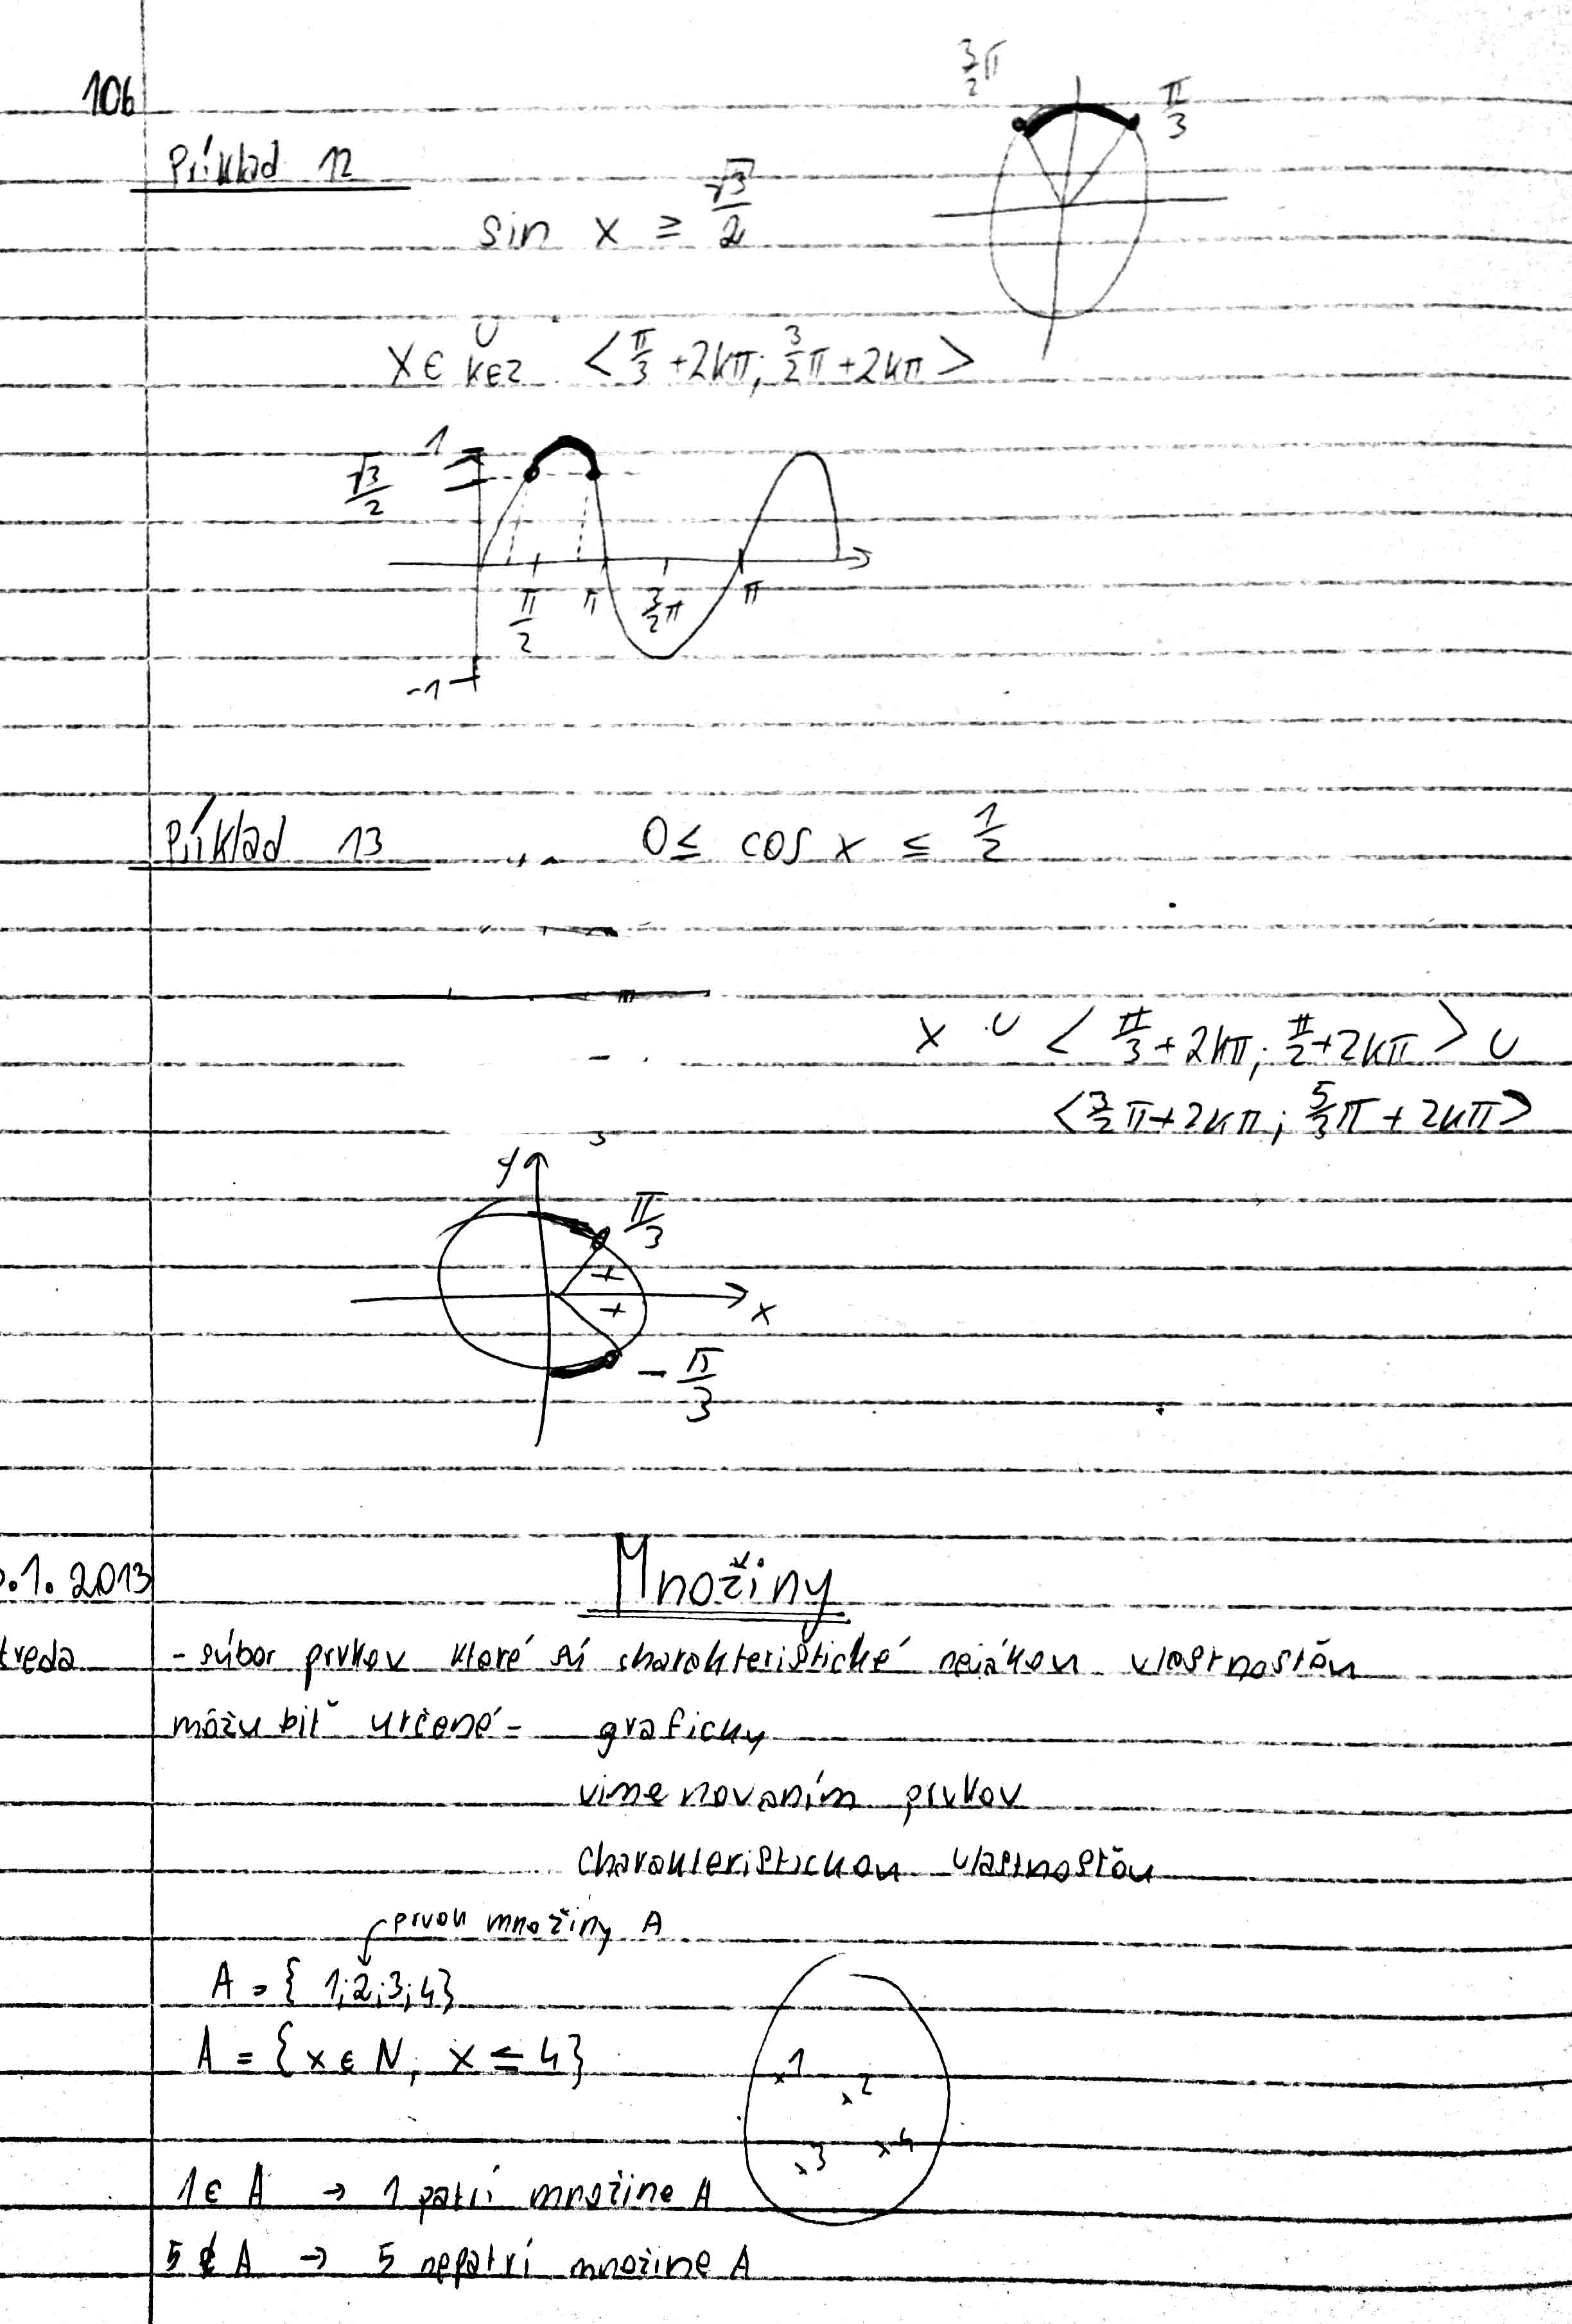 106
Príklad 12
3/2 π
π/3
sin x ≥ √3/2
x ∈ ∪ k∈Z <π/3 + 2kπ; 3/2 π + 2kπ>
1
√3/2
π/2 π 3/2 π π
-1
Príklad 13 0 ≤ cos x ≤ 1/2
x ∪ < π/3 + 2kπ; π/2 + 2kπ > ∪
<3/2 π + 2kπ; 5/3 π + 2kπ>
y
π/3
+
+
x
- π/3
.1.2013 Množiny
treda - súbor prvkov ktoré sú charakteristické nejakou vlastnosťou
môžu biť určené - graficky
vimenovaním prvkov
charakteristickou vlastnosťou
prvok množiny A
A = { 1;2;3;4}
A = {x ∈ N, x ≤ 4}
x1
x2
x3 x4
1 ∈ A → 1 patrí množine A
5 ∉ A → 5 nepatrí množine A